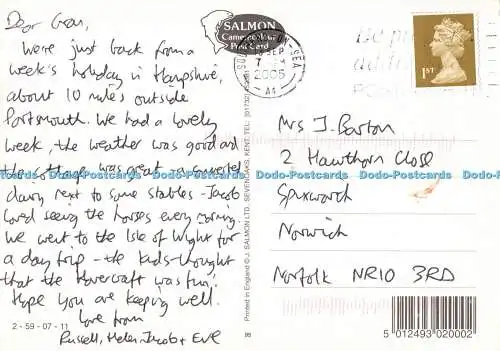 Dear Gran,
We're just back from a
week's holiday in Hampshire,
about 10 miles outside
Portsmouth. We had a lovely
week, the weather was good and
the cottage was great - a converted
dairy next to some stables - Jacob
loved seeing the horses every morning.
We went to the Isle of Wight for
a day trip - the kids thought
that the Hovercraft was fun!
Hope you are keeping well.
Love from
Russell, Helen, Jacob + Eve
2-59-07-11
SALMON
Cameracolour
Post Card
SEP
2005
A4
1ST
Mrs J. Barton
2 Hawthorn Close
Spixworth
Norwich
Norfolk NR10 3RD
Printed in England © J. SALMON LTD., SEVENOAKS, KENT. TEL: (01732)
5 012493 020002
Dodo-Postcards Dodo-Postcards Dodo-Postcards Dodo-Postcards Dodo-Postcards